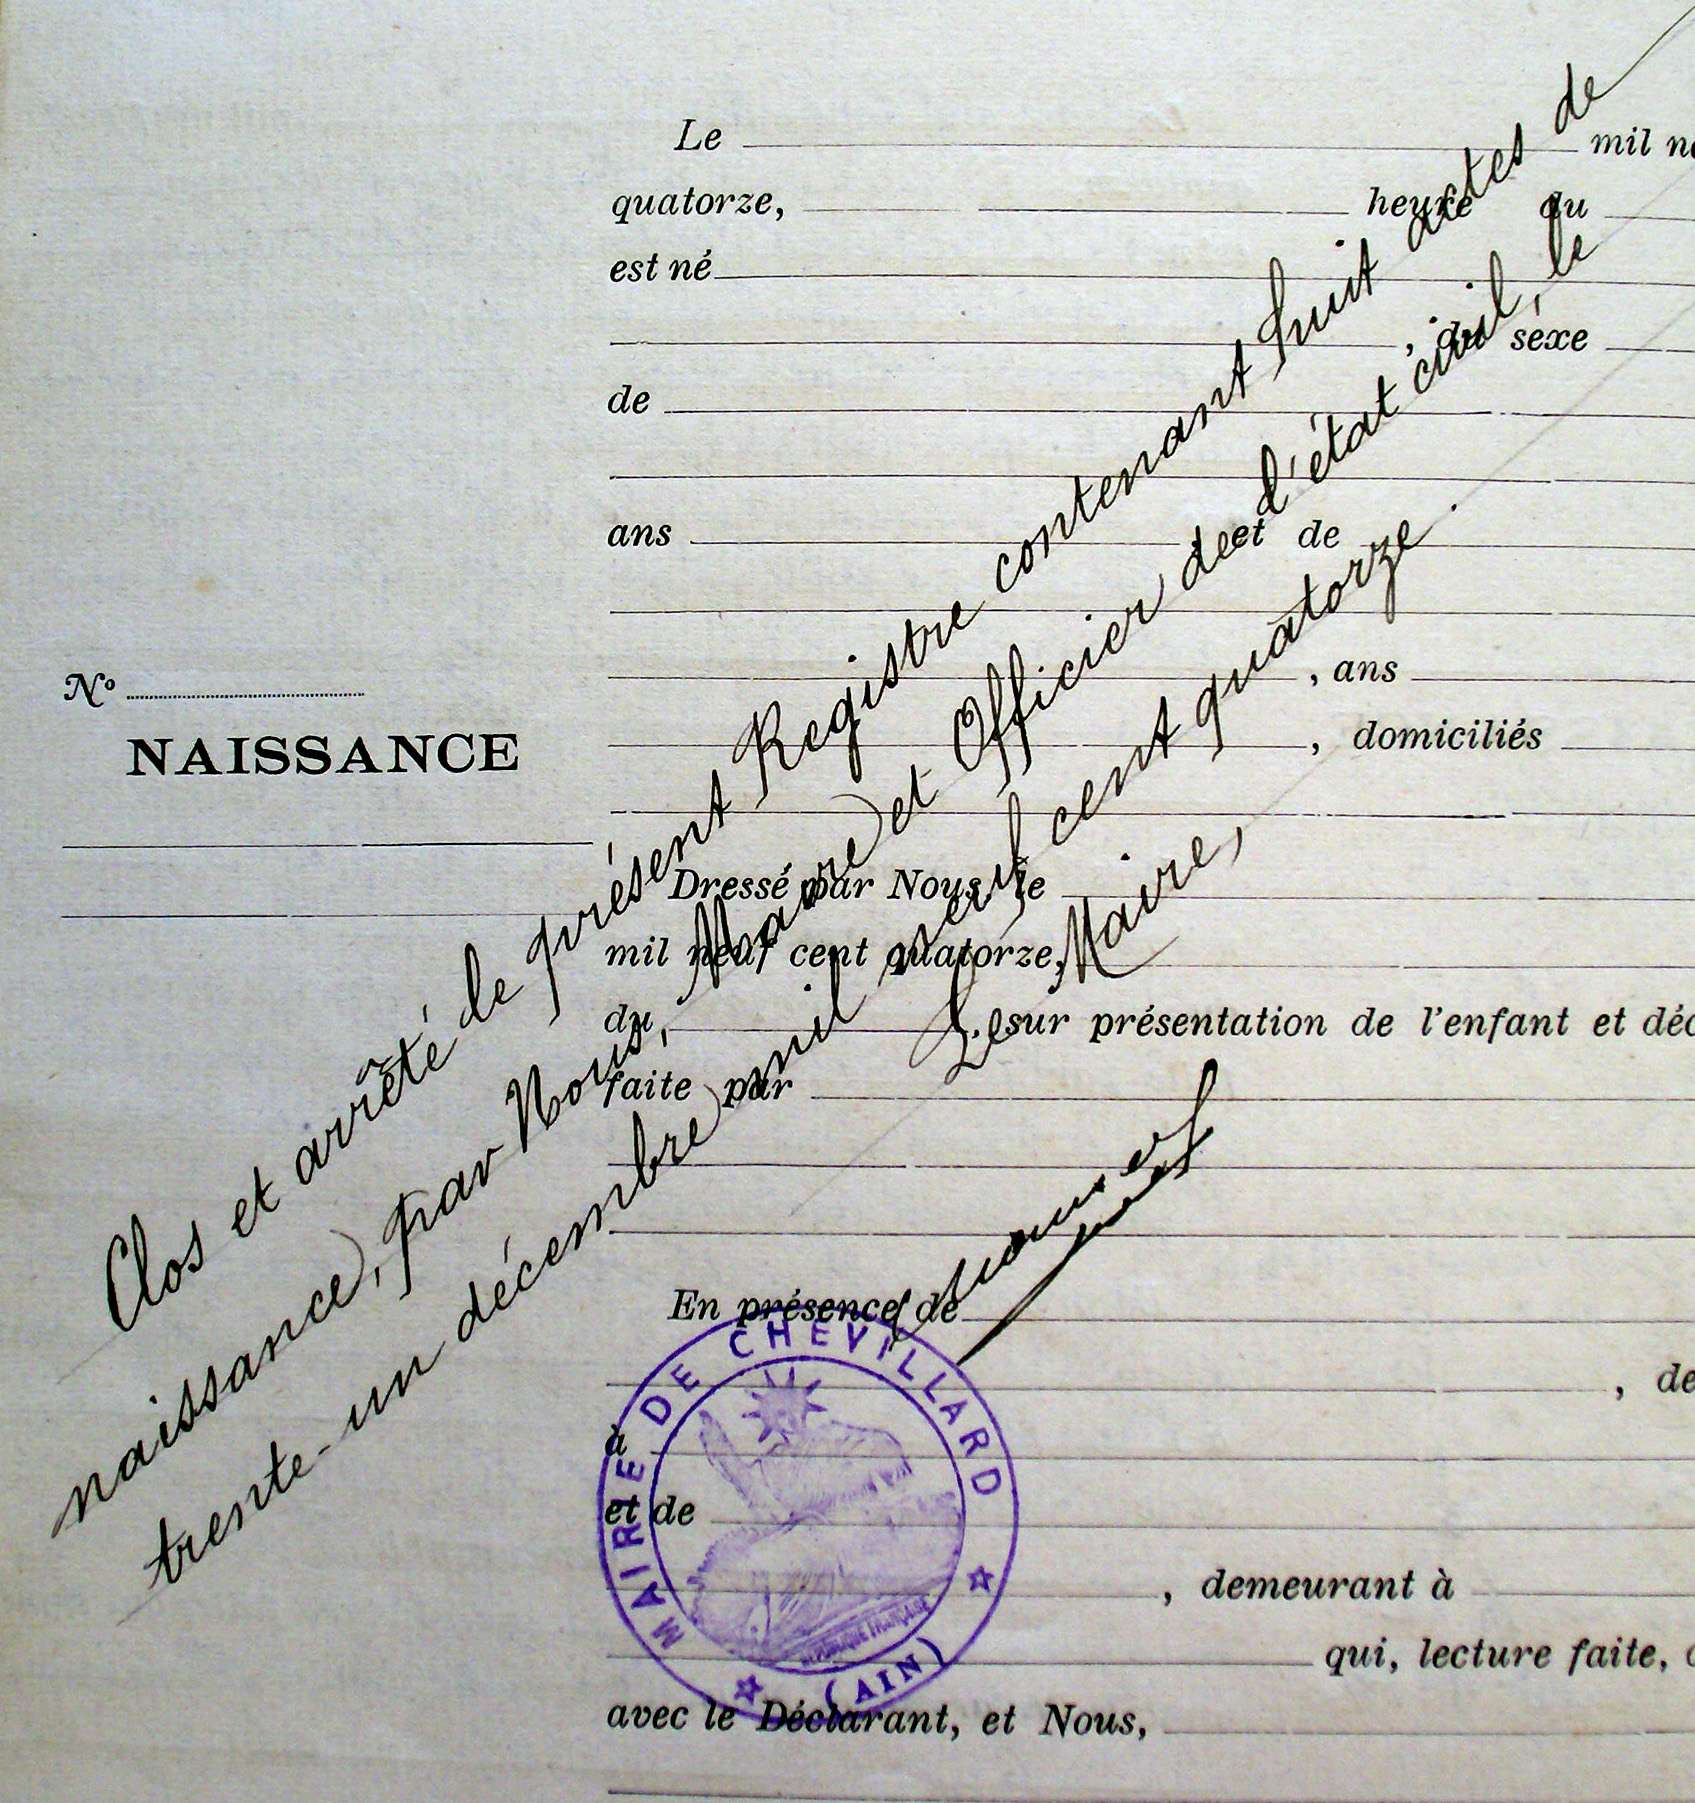 Le mil
quatorze, heure du
est né
, du sexe
de
ans et de
, ans
, domiciliés
Dressé par Nous, le
mil neuf cent quatorze,
du , sur présentation de l'enfant et déc
faite par
En présence de
, de
à
et de
, demeurant à
qui, lecture faite,
avec le Déclarant, et Nous,
Nº
NAISSANCE
Clos et arrêté le présent Registre contenant huit actes de
naissance, par Nous, Maire et Officier de l'état civil, le
trente-un décembre mil neuf cent quatorze.
Le Maire,
MAIRIE DE CHEVILLARD
(AIN)
RÉPUBLIQUE FRANÇAISE